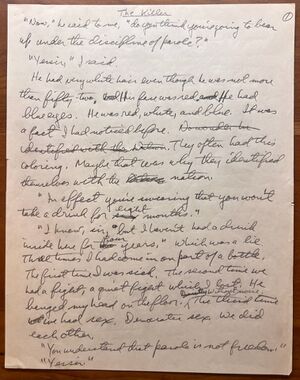 The Killer
1
"Now," he said to me, "do you think you're going to bear
up under the discipline of parole?"
"Yessir," I said.
He had very white hair even though he was not more
than fifty-two, and His face was red, and He had
blue eyes. He was red, white, and blue. It was
a fact I had noticed before. No wonder he
identified with the nation. They often had this
coloring. Maybe that was why they identified
themselves with the nation.
"In effect you're swearing that you won't
take a drink for eight months."
"I know, sir, but I haven't had a drink
inside here for four years," which was a lie
Three times I had come in on part of a bottle.
The first time I was sick. The second time we
had a fight, a quiet fight which I lost. He
banged my head on the floor. The third time
we had sex. Democratic sex. We did
each other.
"You understand that parole is not freedom."
"Yessir"